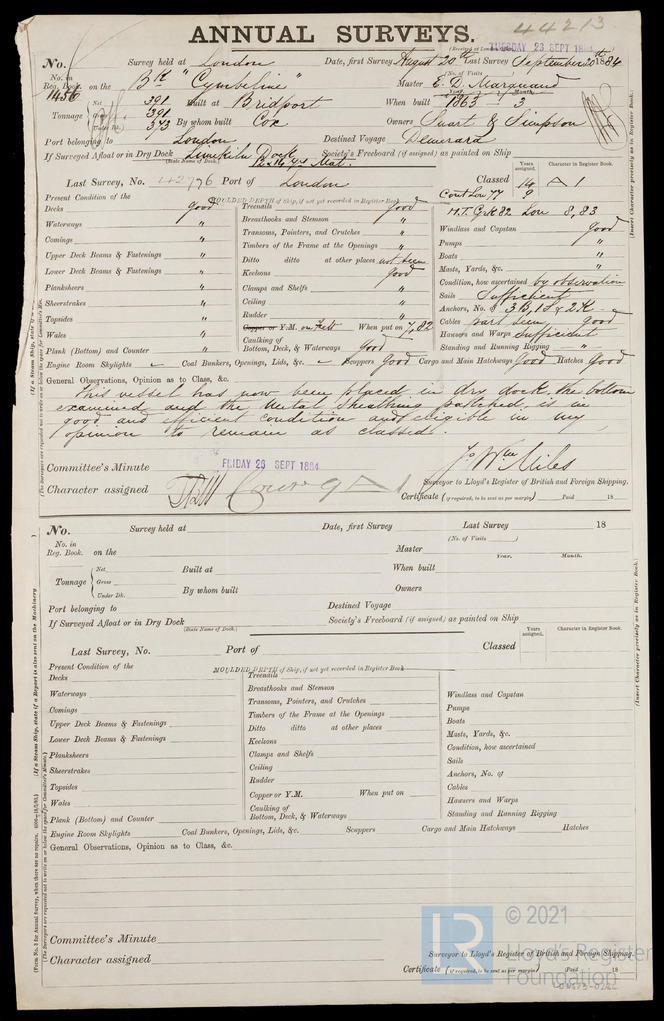 44213
ANNUAL SURVEYS.
(Received at London
TUESDAY 23 SEPT 1884
No. Survey held at London Date, first Survey August 20th Last Survey September 20th 1884
No. in Reg. Book. 1456 on the Bk "Cymbeline" (No. of Visits) Master E. D. Marquand
Year. Month.
Tonnage Net 391 Built at Bridport When built 1863 3
Gross 391
Under Dk. 373 By whom built Cox Owners Stuart & Simpson
Port belonging to London Destined Voyage Demerara
If Surveyed Afloat or in Dry Dock Limekiln Dock Society's Freeboard (if assigned) as painted on Ship
(State Name of Dock.)
Last Survey, No. 42776 Port of London Classed Years assigned. 14 Character in Register Book. A1
Cont Lon 77 9
Present Condition of the MOULDED DEPTH of Ship, if not yet recorded in Register Book M.T.C.rk 82 Lon 8,83
Decks good Treenails good Windlass and Capstan good
Waterways " Breasthooks and Stemson " Pumps "
Comings " Transoms, Pointers, and Crutches " Boats "
Upper Deck Beams & Fastenings " Timbers of the Frame at the Openings " Masts, Yards, &c. "
Lower Deck Beams & Fastenings " Ditto ditto at other places not seen Condition, how ascertained by observation
Planksheers " Keelsons good Sails Sufficient
Sheerstrakes " Clamps and Shelfs " Anchors, No. of 3B, 1S & 2K
Topsides " Ceiling " Cables part seen, good
Wales " Rudder " Hawsers and Warps Sufficient
Plank (Bottom) and Counter " Copper or Y.M. on Felt When put on 7,82 Standing and Running Rigging "
Caulking of Bottom, Deck, & Waterways good
Engine Room Skylights Coal Bunkers, Openings, Lids, &c. Scuppers Good Cargo and Main Hatchways Good Hatches Good
General Observations, Opinion as to Class, &c.
This vessel has now been placed in dry dock, the bottom
examined and the Metal Sheathing patched, is in
good and efficient condition and eligible in my
opinion to remain as classed.
Committee's Minute FRIDAY 26 SEPT 1884
Jo. Wm Miles
Character assigned A1 Surveyor to Lloyd's Register of British and Foreign Shipping.
Certificate (if required, to be sent as per margin) Paid 18
No. Survey held at Date, first Survey Last Survey 18
No. in Reg. Book. on the (No. of Visits ) Master
Year. Month.
Tonnage Net Built at When built
Gross
Under Dk. By whom built Owners
Port belonging to Destined Voyage
If Surveyed Afloat or in Dry Dock Society's Freeboard (if assigned) as painted on Ship
(State Name of Dock.)
Last Survey, No. Port of Classed Years assigned. Character in Register Book.
Present Condition of the MOULDED DEPTH of Ship, if not yet recorded in Register Book
Decks Treenails
Waterways Breasthooks and Stemson Windlass and Capstan
Comings Transoms, Pointers, and Crutches Pumps
Upper Deck Beams & Fastenings Timbers of the Frame at the Openings Boats
Lower Deck Beams & Fastenings Ditto ditto at other places Masts, Yards, &c.
Planksheers Keelsons Condition, how ascertained
Sheerstrakes Clamps and Shelfs Sails
Topsides Ceiling Anchors, No. of
Wales Rudder Cables
Plank (Bottom) and Counter Copper or Y.M. When put on Hawsers and Warps
Caulking of Bottom, Deck, & Waterways Standing and Running Rigging
Engine Room Skylights Coal Bunkers, Openings, Lids, &c. Scuppers Cargo and Main Hatchways Hatches
General Observations, Opinion as to Class, &c.
Committee's Minute
Character assigned Surveyor to Lloyd's Register of British and Foreign Shipping.
Certificate (if required, to be sent as per margin) Paid 18
(Insert Character precisely as in Register Book.)
(Insert Character precisely as in Register Book.)
LR © 2021
Lloyd's Register
Foundation